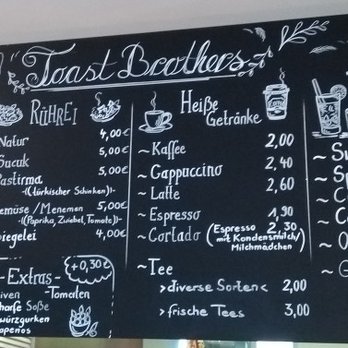 Toast Brothers
RÜHREI
Natur 4,00€
Sucuk 5,00€
Pastirma 5,00€
((türkischer Schinken))
Gemüse/Menemen 5,00€
((Paprika, Zwiebel, Tomate))
Spiegelei 4,00€
-Extras- +0,30€
Oliven -Tomaten
Scharfe Soße
Gewürzgurken
Jalapenos
Heiße
Getränke
~ Kaffee 2,00
~ Cappuccino 2,40
~ Latte 2,60
~ Espresso 1,90
~ Cortado (Espresso 2,30
mit Kondensmilch/
Milchmädchen)
~ Tee
>diverse Sorten< 2,00
>frische Tees 3,00